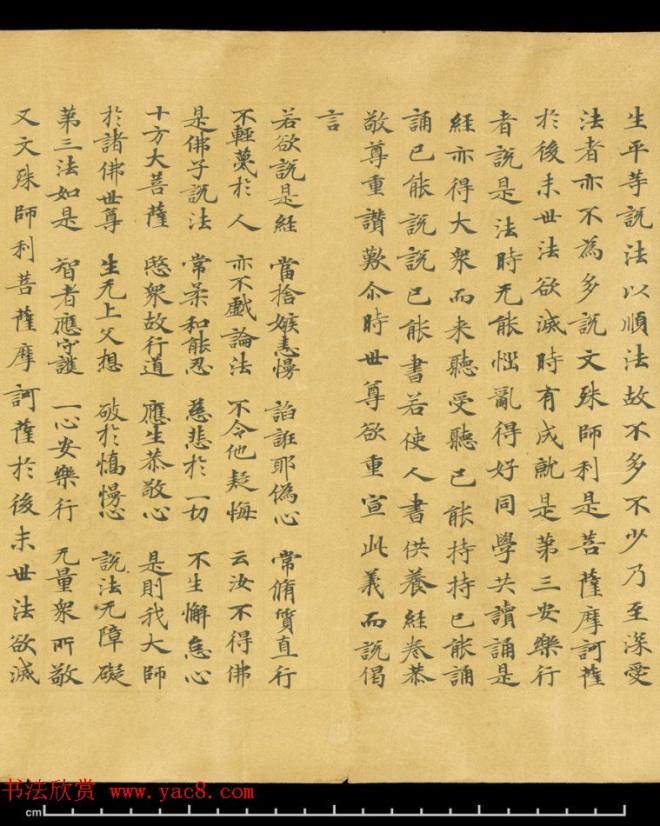 生平等說法以順法故不多不少乃至深愛
法者亦不為多說文殊師利是菩薩摩訶薩
於後末世法欲滅時有成就是第三安樂行
者說是法時无能惱亂得好同學共讀誦是
經亦得大衆而来聽受聽已能持持已能誦
誦已能說說已能書若使人書供養經卷恭
敬尊重讃歎尒時世尊欲重宣此義而說偈
言
若欲說是經 當捨嫉恚慢 諂誑耶偽心 常脩質直行
不輕蔑於人 亦不戲論法 不令他疑悔 云汝不得佛
是佛子說法 常柔和能忍 慈悲於一切 不生懈怠心
十方大菩薩 愍衆故行道 應生恭敬心 是則我大師
於諸佛世尊 生无上父想 破於憍慢心 說法无障礙
第三法如是 智者應守護 一心安樂行 无量衆所敬
又文殊師利菩薩摩訶薩於後末世法欲滅
书法欣赏 www.yac8.com
cm